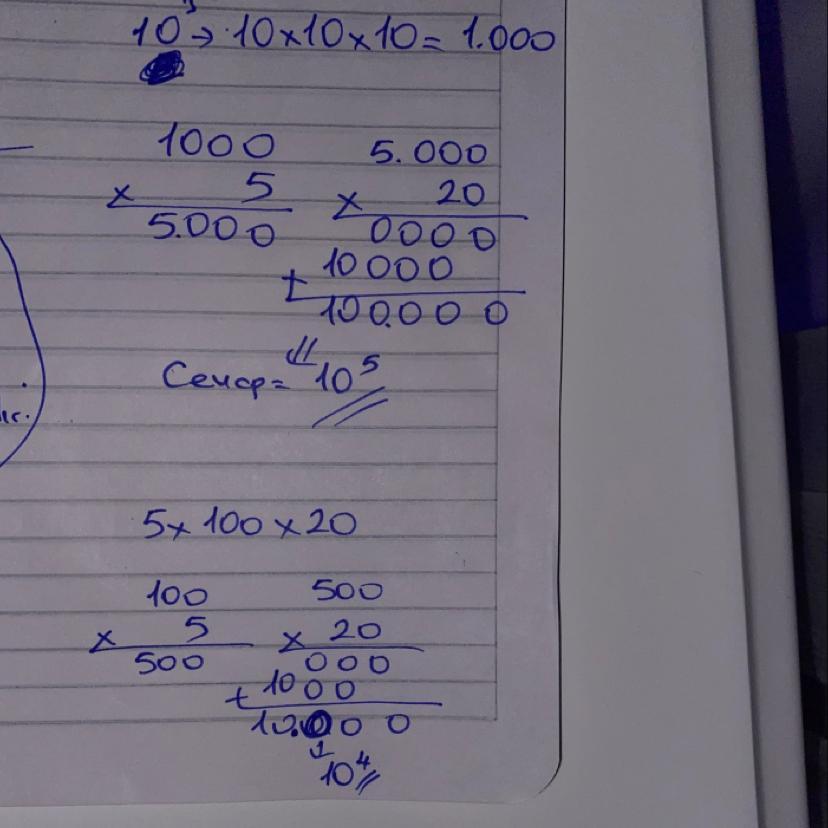 10³ → 10x10x10= 1.000
1000 5.000
x 5 x 20
5.000 0000
+ 10000
100.000
Cevap= 10⁵
5x100x20
100 500
x 5 x 20
500 000
+ 1000
10.000
10⁴